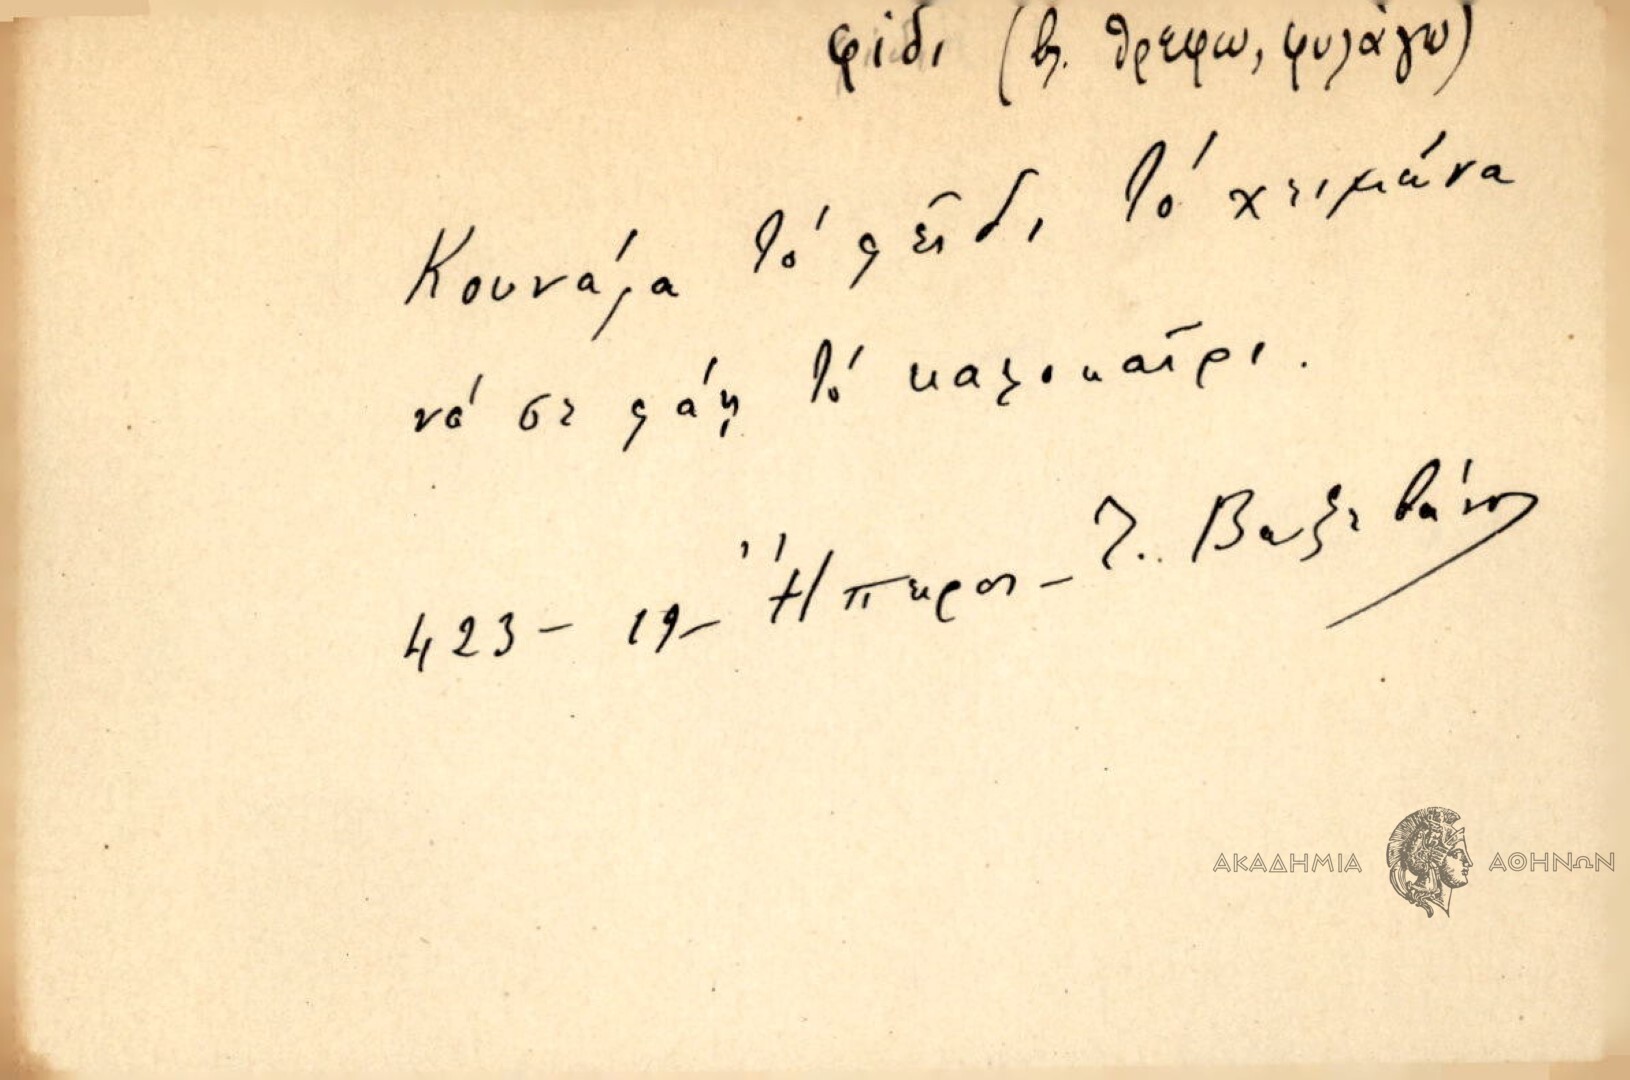 φίδι (βλ. θρέφω, φυλάγω)
Κουνάρα τὸ φεῖδι τὸ χειμώνα
νά σε φάῃ τὸ καλοκαῖρι.
423 – 19 – Ἤπειρος – Γ. Βαξεβάνης
ΑΚΑΔΗΜΙΑ ΑΘΗΝΩΝ